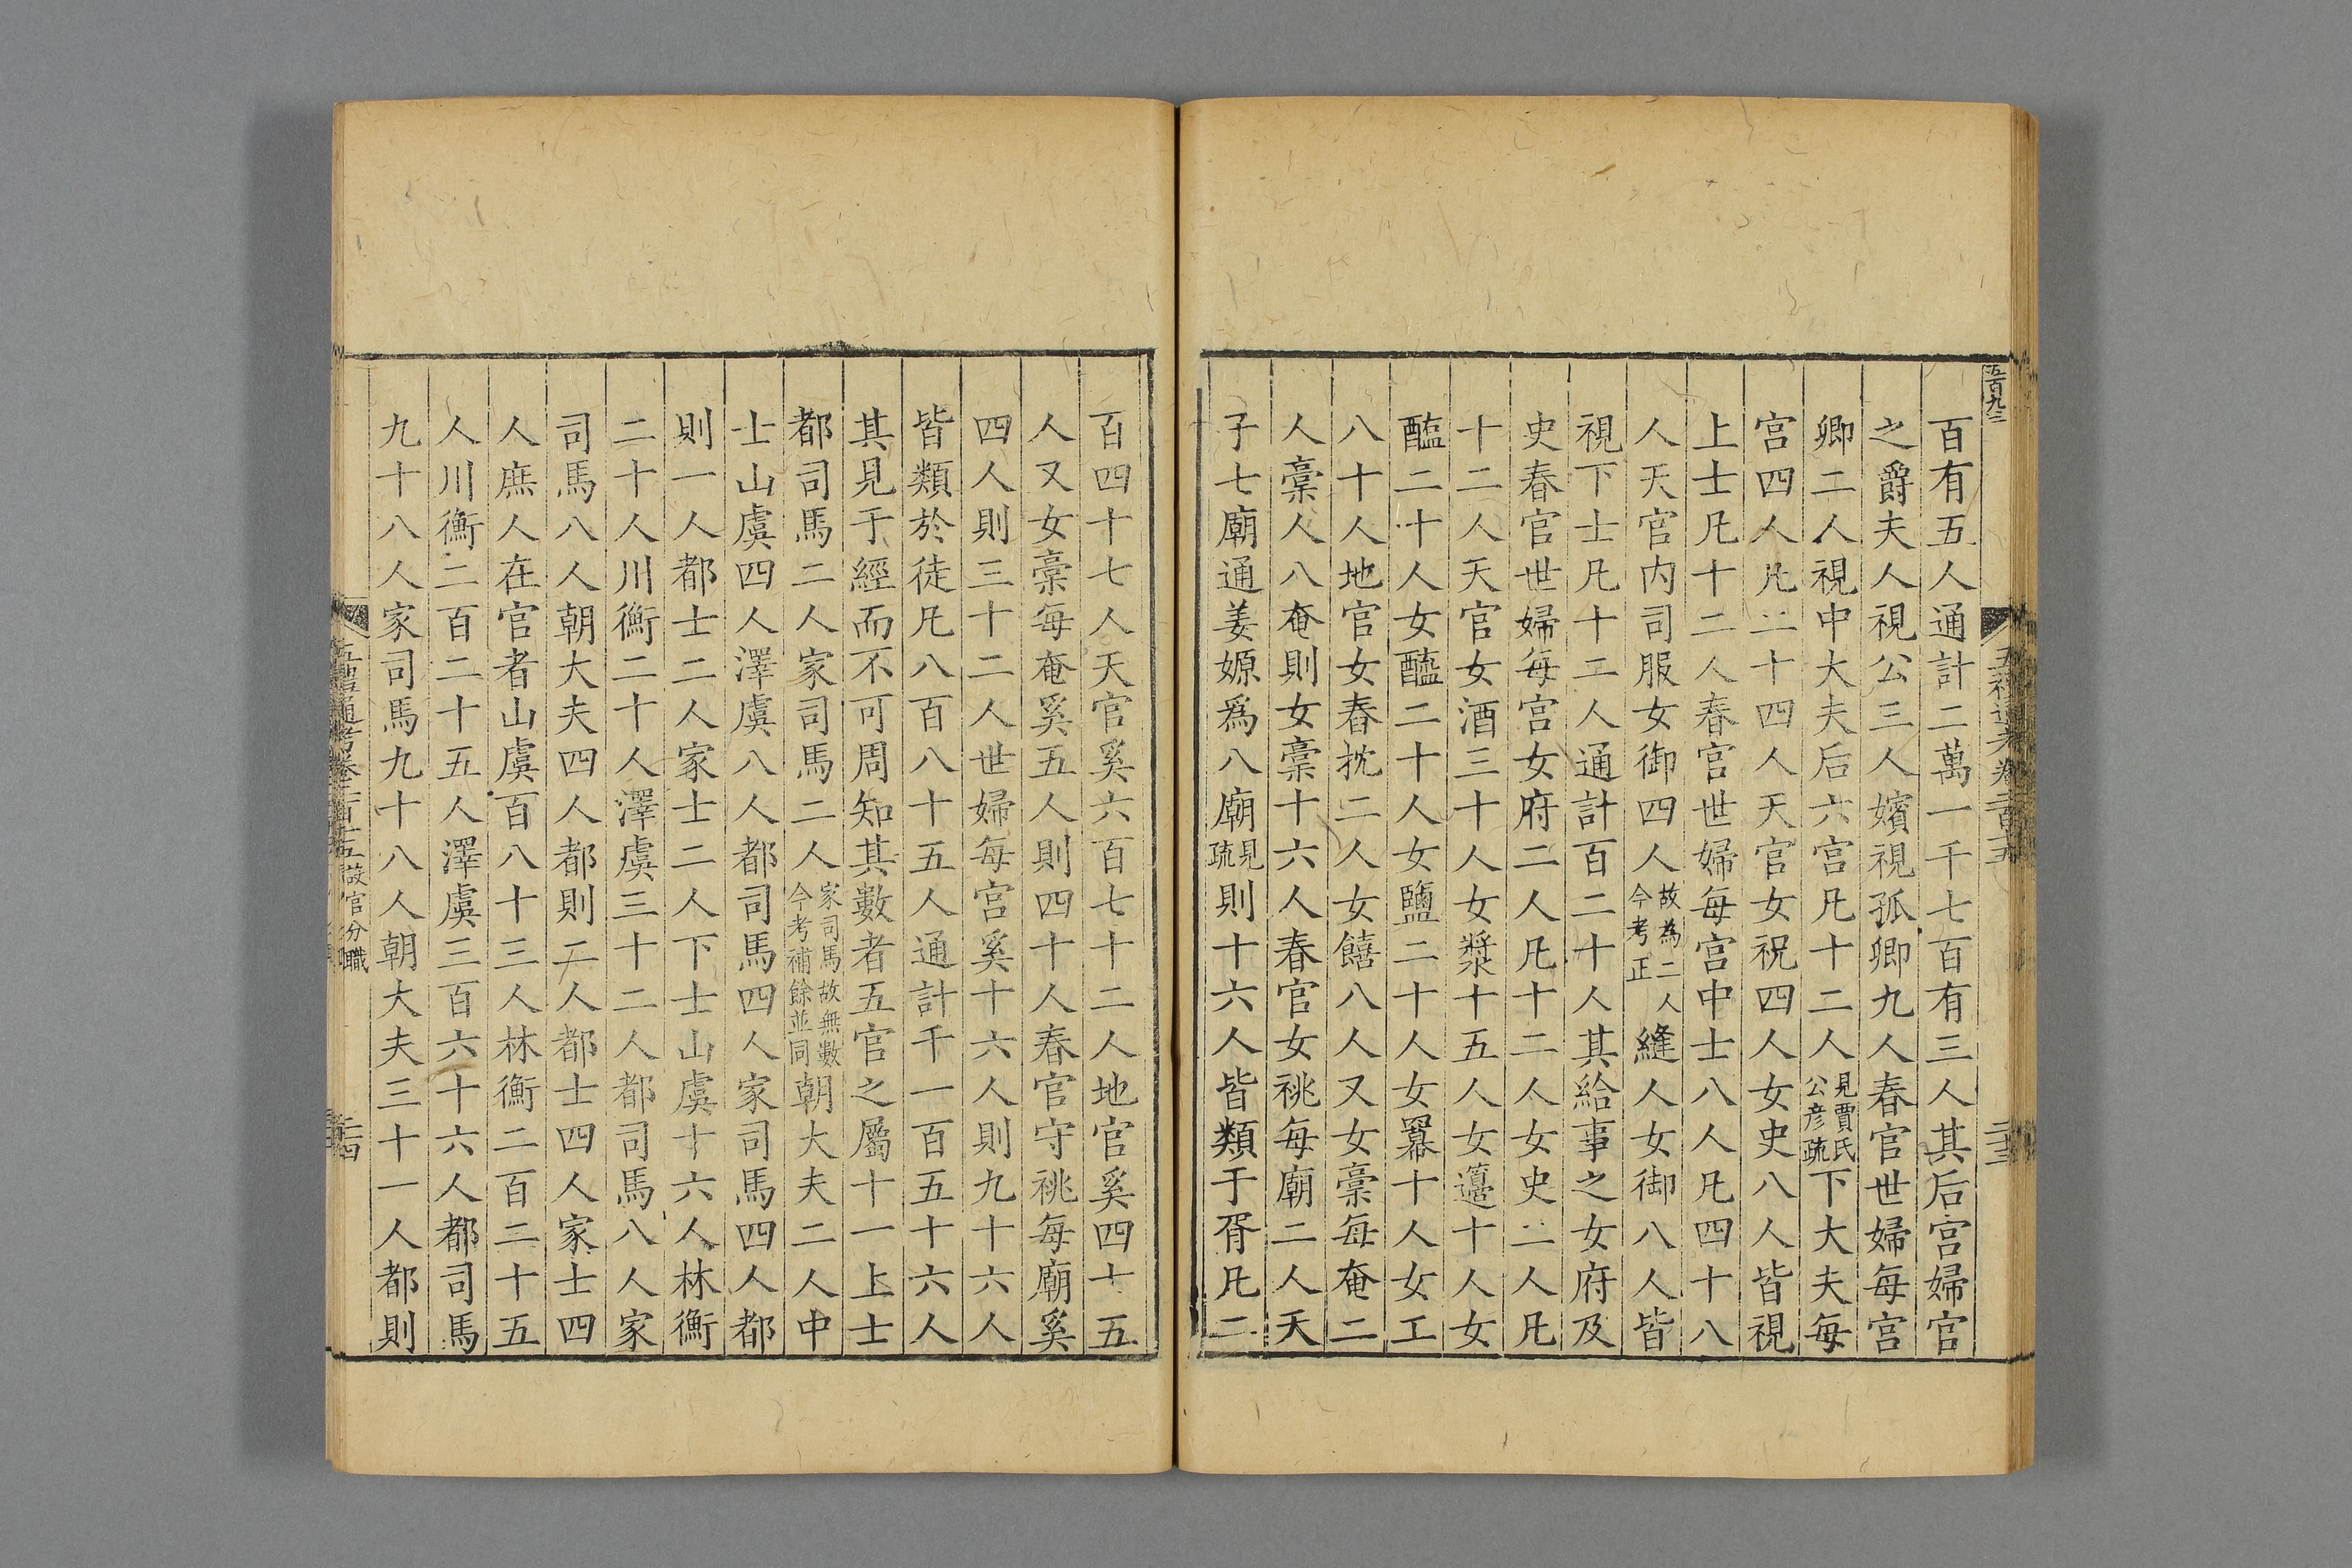 百有五人通計二萬一千七百有三人其后宮婦官
之爵夫人視公三人嬪視孤卿九人春官世婦每宮
卿二人視中大夫后六宮凡十二人見賈氏公彦疏下大夫每
宮四人凡二十四人天官女祝四人女史八人皆視
上士凡十二人春官世婦每宮中士八人凡四十八
人天官內司服女御四人故為二人今考正縫人女御八人皆
視下士凡十二人通計百二十人其給事之女府及
史春官世婦每宮女府二人凡十二人女史二人凡
十二人天官女酒三十人女漿十五人女籩十人女
醢二十人女醯二十人女鹽二十人女冪十人女工
八十人地官女舂抌二人女饎八人又女槀每奄二
人槀人八奄則女槀十六人春官女祧每廟二人天
子七廟通姜嫄爲八廟見疏則十六人皆類于胥凡二
百四十七人天官奚六百七十二人地官奚四十五
人又女槀每奄奚五人則四十人春官守祧每廟奚
四人則三十二人世婦每宮奚十六人則九十六人
皆類於徒凡八百八十五人通計千一百五十六人
其見于經而不可周知其數者五官之屬十一上士
都司馬二人家司馬二人家司馬故無數今考補餘並同朝大夫二人中
士山虞四人澤虞八人都司馬四人家司馬四人都
則一人都士二人家士二人下士山虞十六人林衡
二十人川衡二十人澤虞三十二人都司馬八人家
司馬八人朝大夫四人都則二人都士四人家士四
人庶人在官者山虞百八十三人林衡二百二十五
人川衡二百二十五人澤虞三百六十六人都司馬
九十八人家司馬九十八人朝大夫三十一人都則
五禮通考卷二百十五 設官分職
二十四